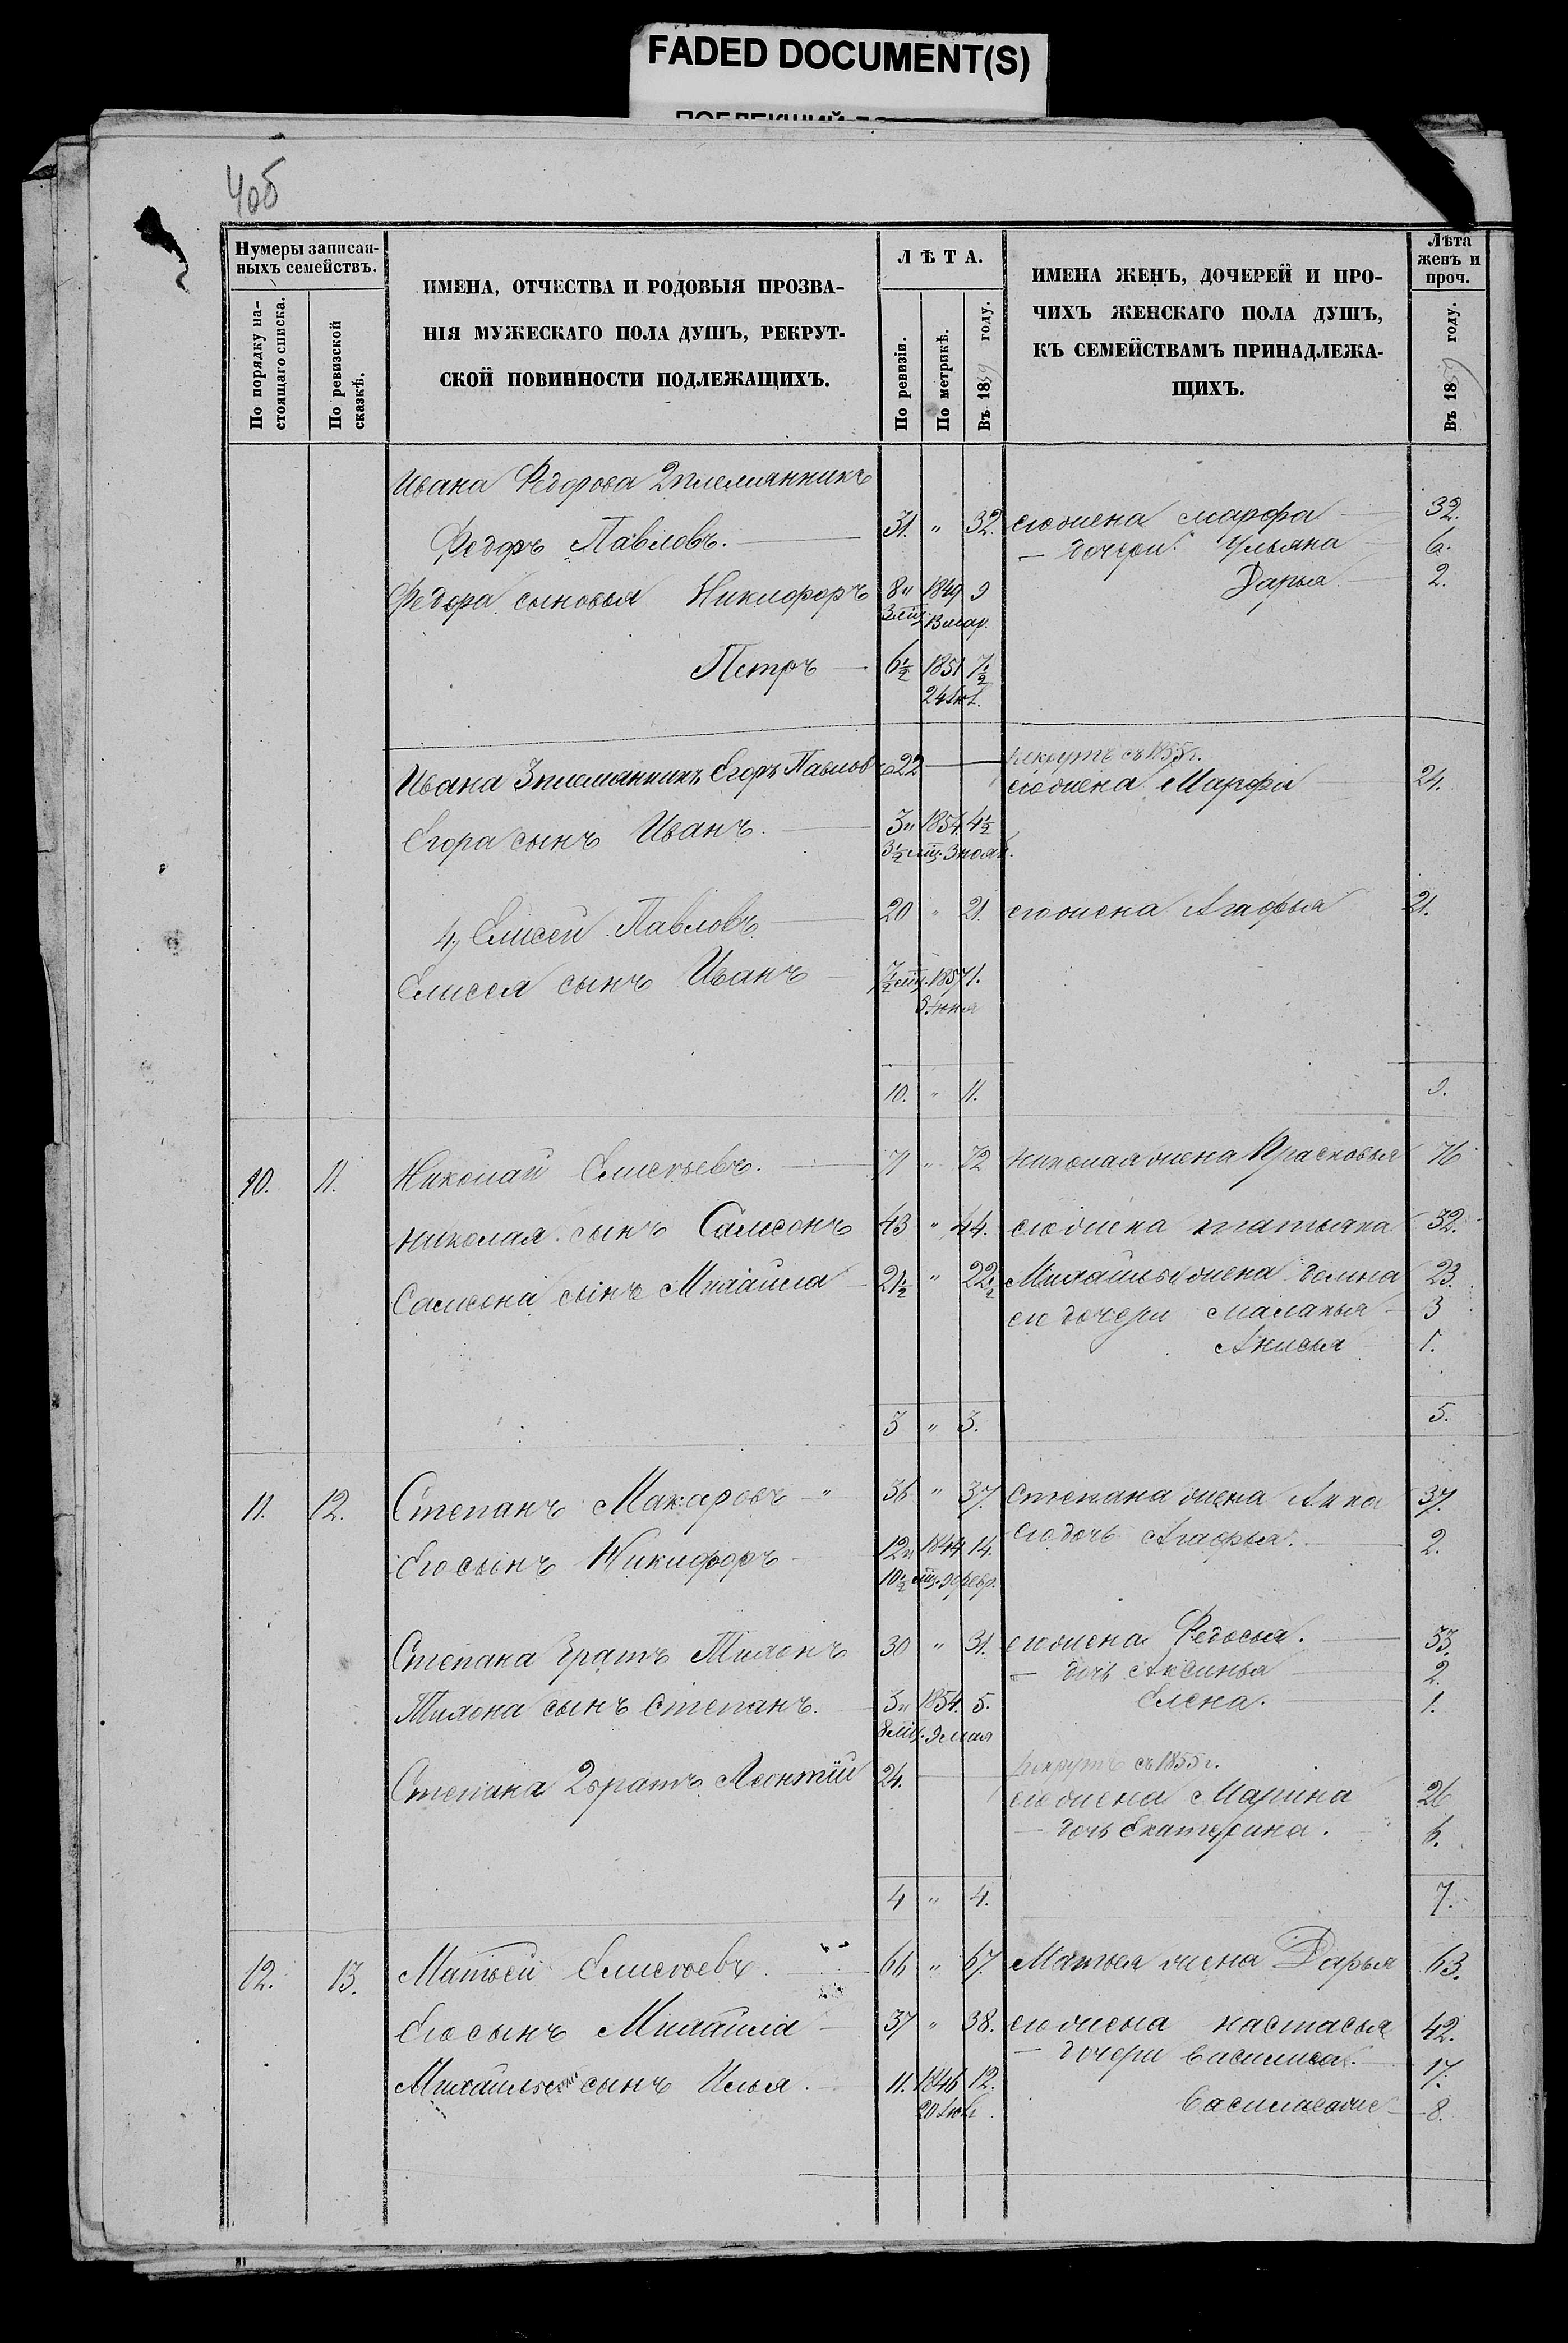 FADED DOCUMENT(S)
40б
Нумеры записан-
ныхъ семействъ.
По порядку на-
стоящаго списка.
По ревизской
сказкѣ.
ИМЕНА, ОТЧЕСТВА И РОДОВЫЯ ПРОЗВА-
НІЯ МУЖЕСКАГО ПОЛА ДУШЪ, РЕКРУТ-
СКОЙ ПОВИННОСТИ ПОДЛЕЖАЩИХЪ.
ЛѢТА.
По ревизіи.
По метрикѣ.
Въ 1859 году.
ИМЕНА ЖЕНЪ, ДОЧЕРЕЙ И ПРО-
ЧИХЪ ЖЕНСКАГО ПОЛА ДУШЪ,
КЪ СЕМЕЙСТВАМЪ ПРИНАДЛЕЖА-
ЩИХЪ.
Лѣта
женъ и
проч.
Въ 1859 году.
Ивана Федорова 2 племянникъ
Федоръ Павловъ. 31. " 32. его жена Марфа 32.
— дочери: Ульяна 6.
Федора сыновья Никифоръ 8 " 1849 9 Дарья 2.
3 мѣц. 13 мар.
Петръ 6½ 1851 7½
24
Ивана 3 племянникъ Егоръ Павлов 22 — рекрутъ съ 1855 г.
его жена Марфа 24.
Егора сынъ Иванъ. 3 " 1854 4½
3½ мѣц. 3 нояб.
4, Елисей Павловъ 20 " 21. его жена Агафья 21.
Елисея сынъ Иванъ 7½ мѣц. 1857 1.
10. " 11. 9.
10. 11. Николай Елисѣевъ. 71 " 72 Николая жена Прасковья 76
Николая сынъ Самсонъ 43 " 44. его жена Татьяна 52.
Самсона сынъ Михайла 21½ " 22½ Михайлы жена Домна 23.
его дочери Маланья 3
Анисья 1.
3 " 3. 5.
11. 12. Степанъ Макаровъ " 36 " 37. Степана жена Анна 37.
Его сынъ Никифоръ 12 " 1844 14. его дочь Агафья. 2.
10½ мѣц. 9 февр.
Степана братъ Тихонъ 30 " 31. его жена Федосья. 33.
— дочь Аксинья 2.
Тихона сынъ Степанъ. 3 " 1854. 5. Елена. 1.
8 мѣц. 9 мая
Степана 2 братъ Леонтій 24. — рекрутъ съ 1855 г.
его жена Марина 26
— дочь Екатерина. 6.
4 " 4. 7.
12. 13. Матвѣй Елисѣевъ 66 " 67. Матвѣя жена Дарья 63.
Его сынъ Михайла 37 " 38. его жена Настасья 42.
— дочери Василиса. 17.
Михайлы сынъ Илья. 11. 1846 12.
20 8.